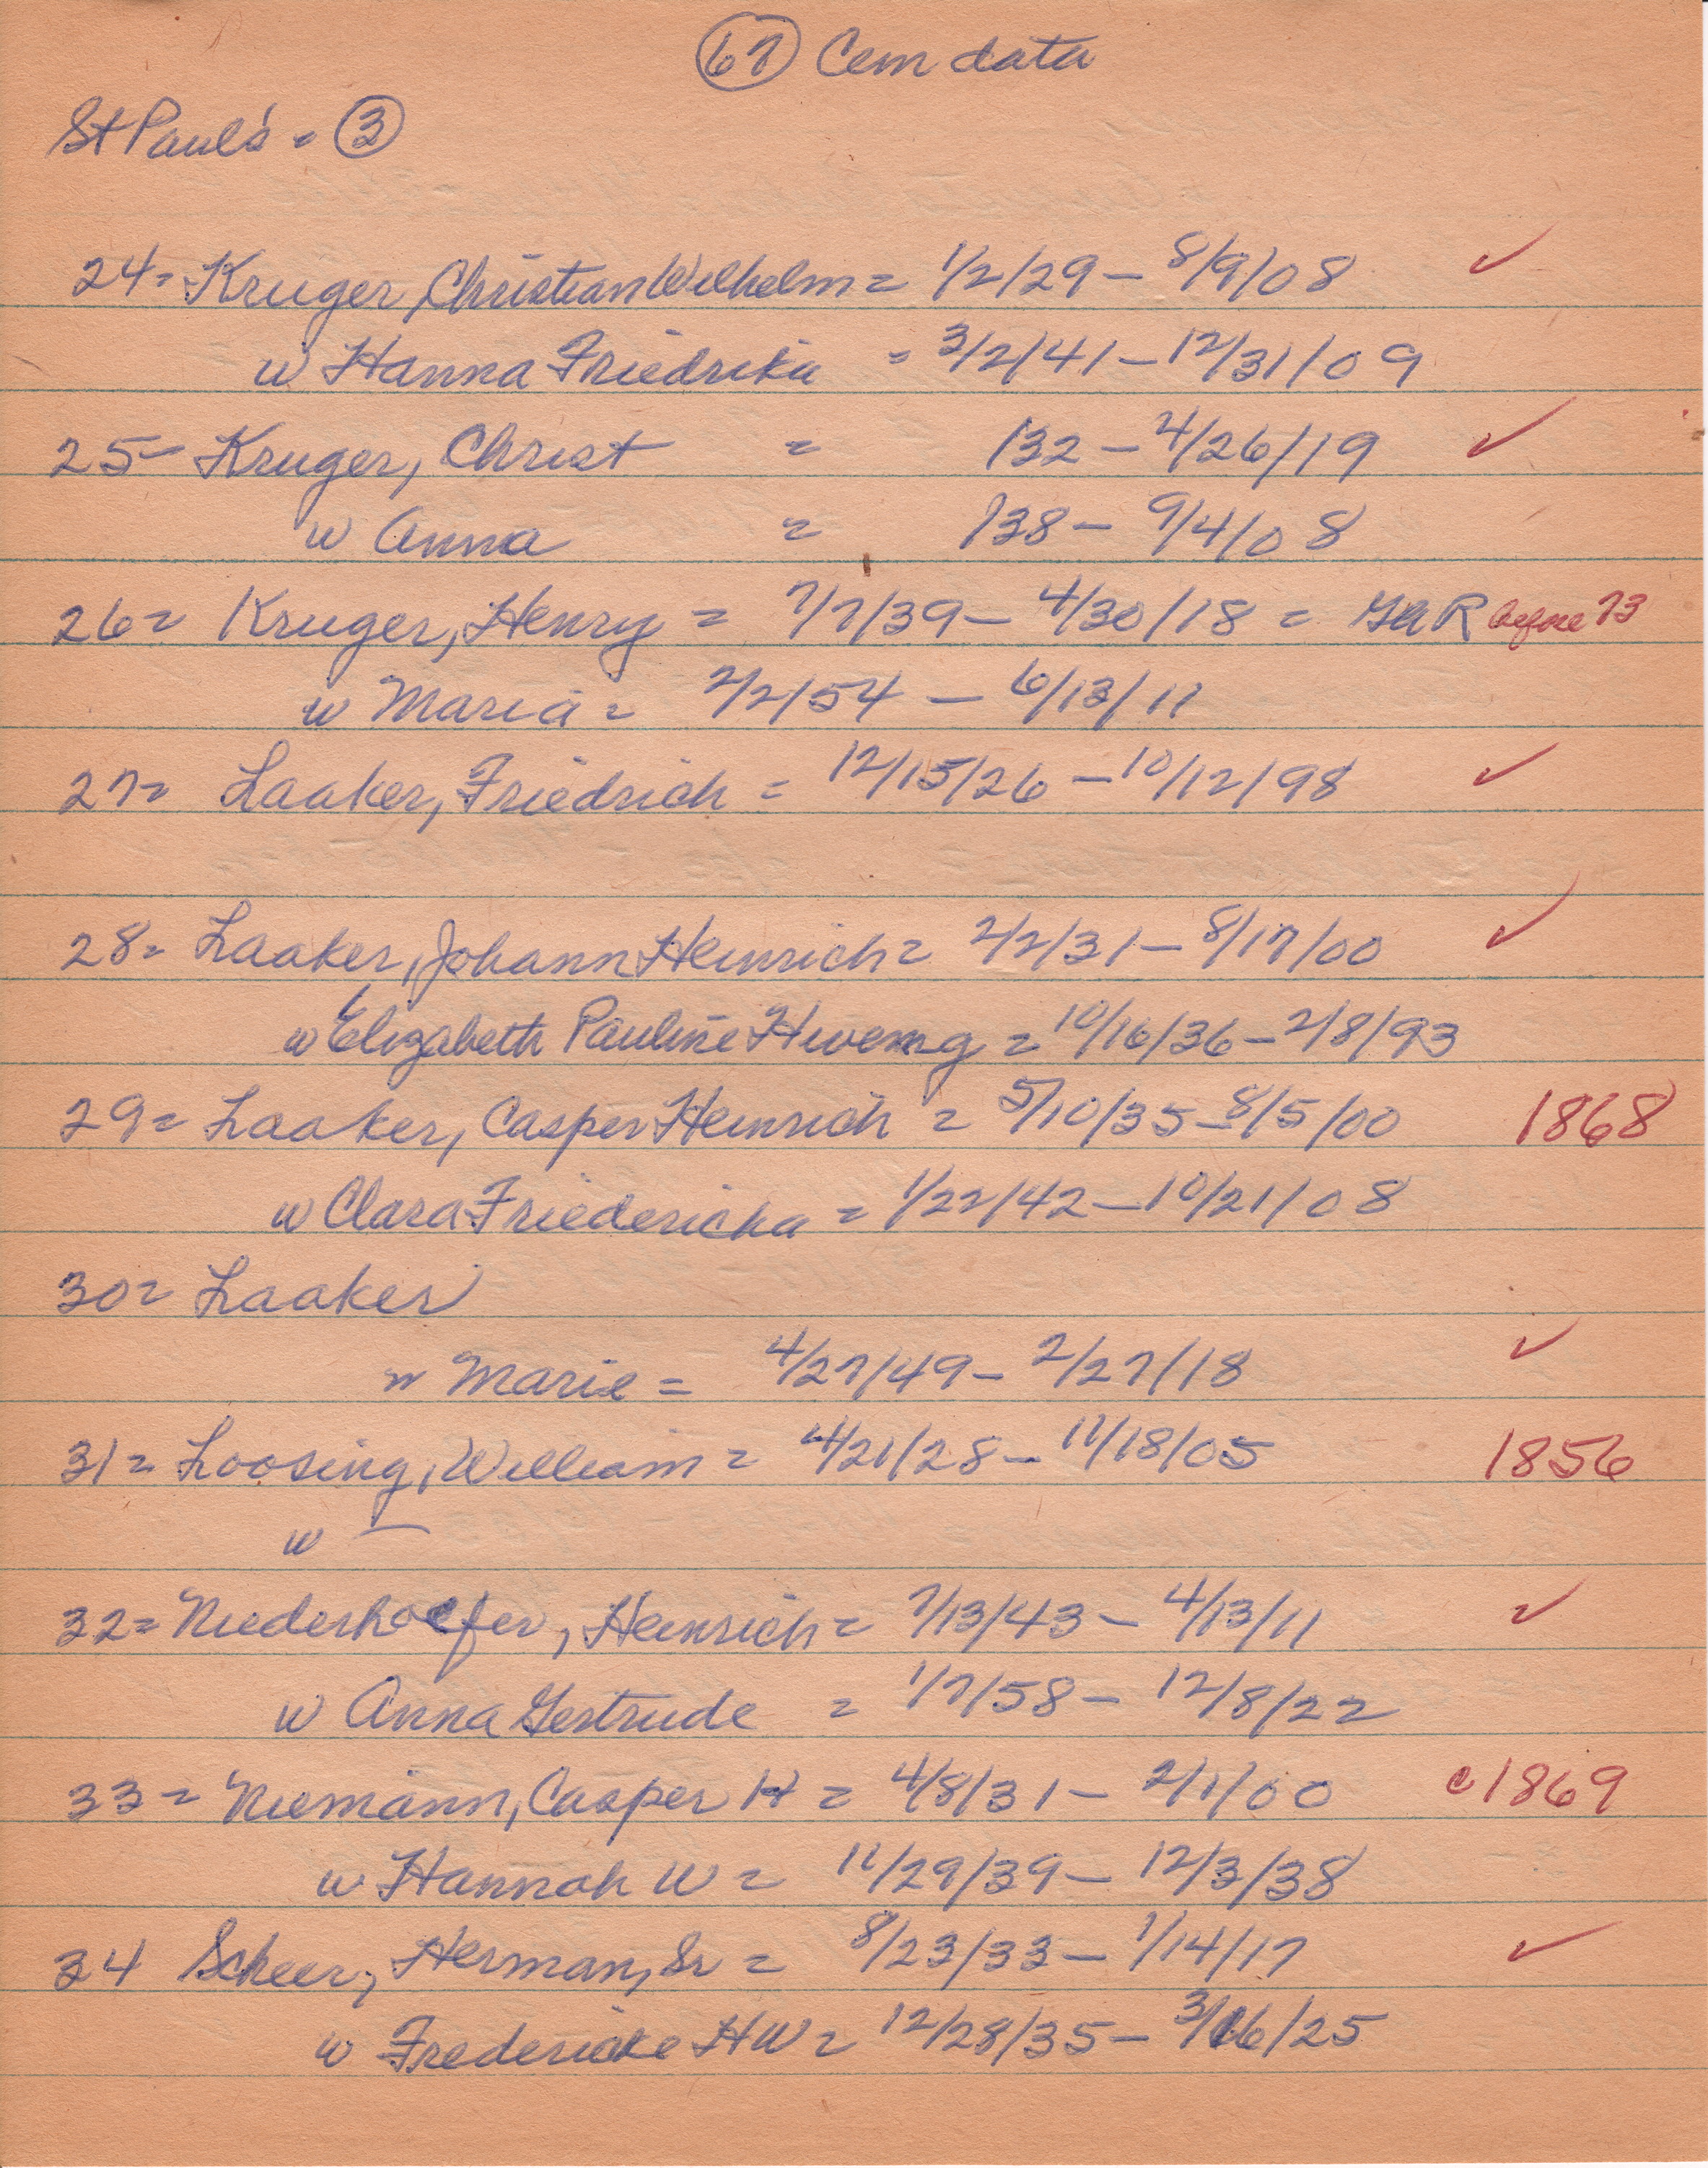 67 Cem data
St Paul's = 3
24= Kruger, Christian Wilhelm = 1/2/29 - 8/9/08 ✓
w Hanna Friedrika = 3/2/41 - 12/31/09
25- Kruger, Christ = /32 - 4/26/19 ✓
w Anna = /38 - 9/4/08
26= Kruger, Henry = 7/7/39 - 4/30/18 = GAR before 73
w Maria = 2/2/54 - 6/13/11
27= Laaker, Friedrich = 12/15/26 - 10/12/98 ✓
28= Laaker, Johann Heinrich = 2/2/31 - 8/17/00 ✓
w Elizabeth Pauline = 10/16/36 - 2/8/93
29= Laaker, Casper Heinrich = 5/10/35 - 8/5/00 1868
w Clara Friedericka = 1/22/42 - 10/21/08
30= Laaker
w Marie = 4/27/49 - 2/27/18 ✓
31= Loosing, William = 4/21/28 - 11/18/05 1856
w —
32= Niederhoefer, Heinrich = 7/13/43 - 4/13/11 ✓
w Anna Gertrude = 1/7/58 - 12/8/22
33= Niemann, Casper H = 4/8/31 - 2/1/00 c1869
w Hannah W = 11/29/39 - 12/3/38
34 Scheer, Herman, Sr = 8/23/33 - 1/14/17 ✓
w Fredericke HW = 12/28/35 - 3/16/25